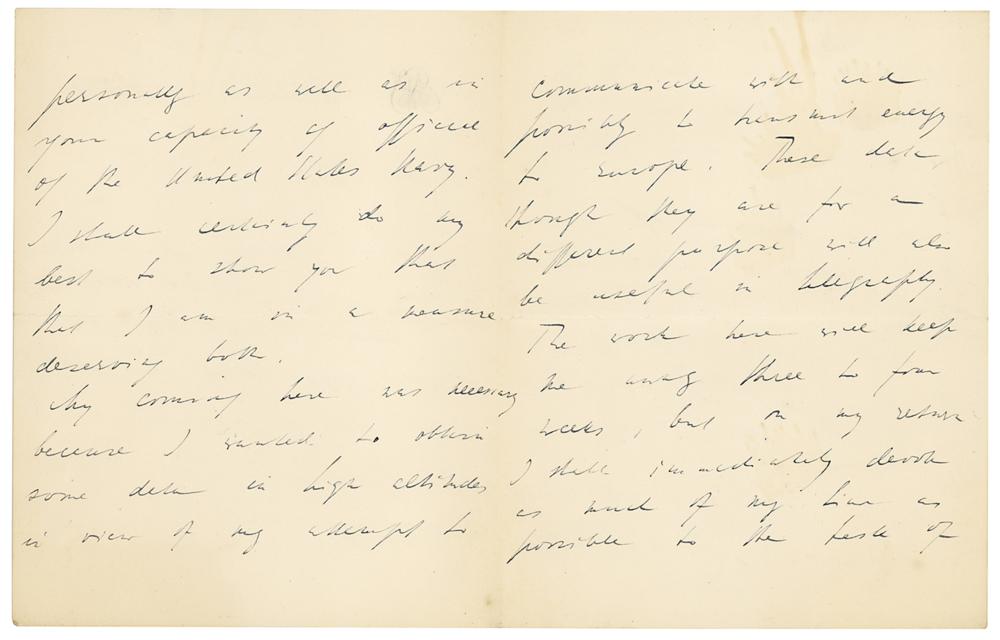 personally as well as in
your capacity of officer
of the United States Navy.
I shall certainly do my
best to show you that
that I am in a measure
deserving both.
My coming here was necessary
because I wanted to obtain
some data in high altitudes
in view of my attempt to
communicate with and
possibly to transmit energy
to Europe. These data,
though they are for a
different purpose will also
be useful in telegraphy.
The work here will keep
me away three to four
weeks, but on my return
I shall immediately devote
as much of my time as
possible to the task of